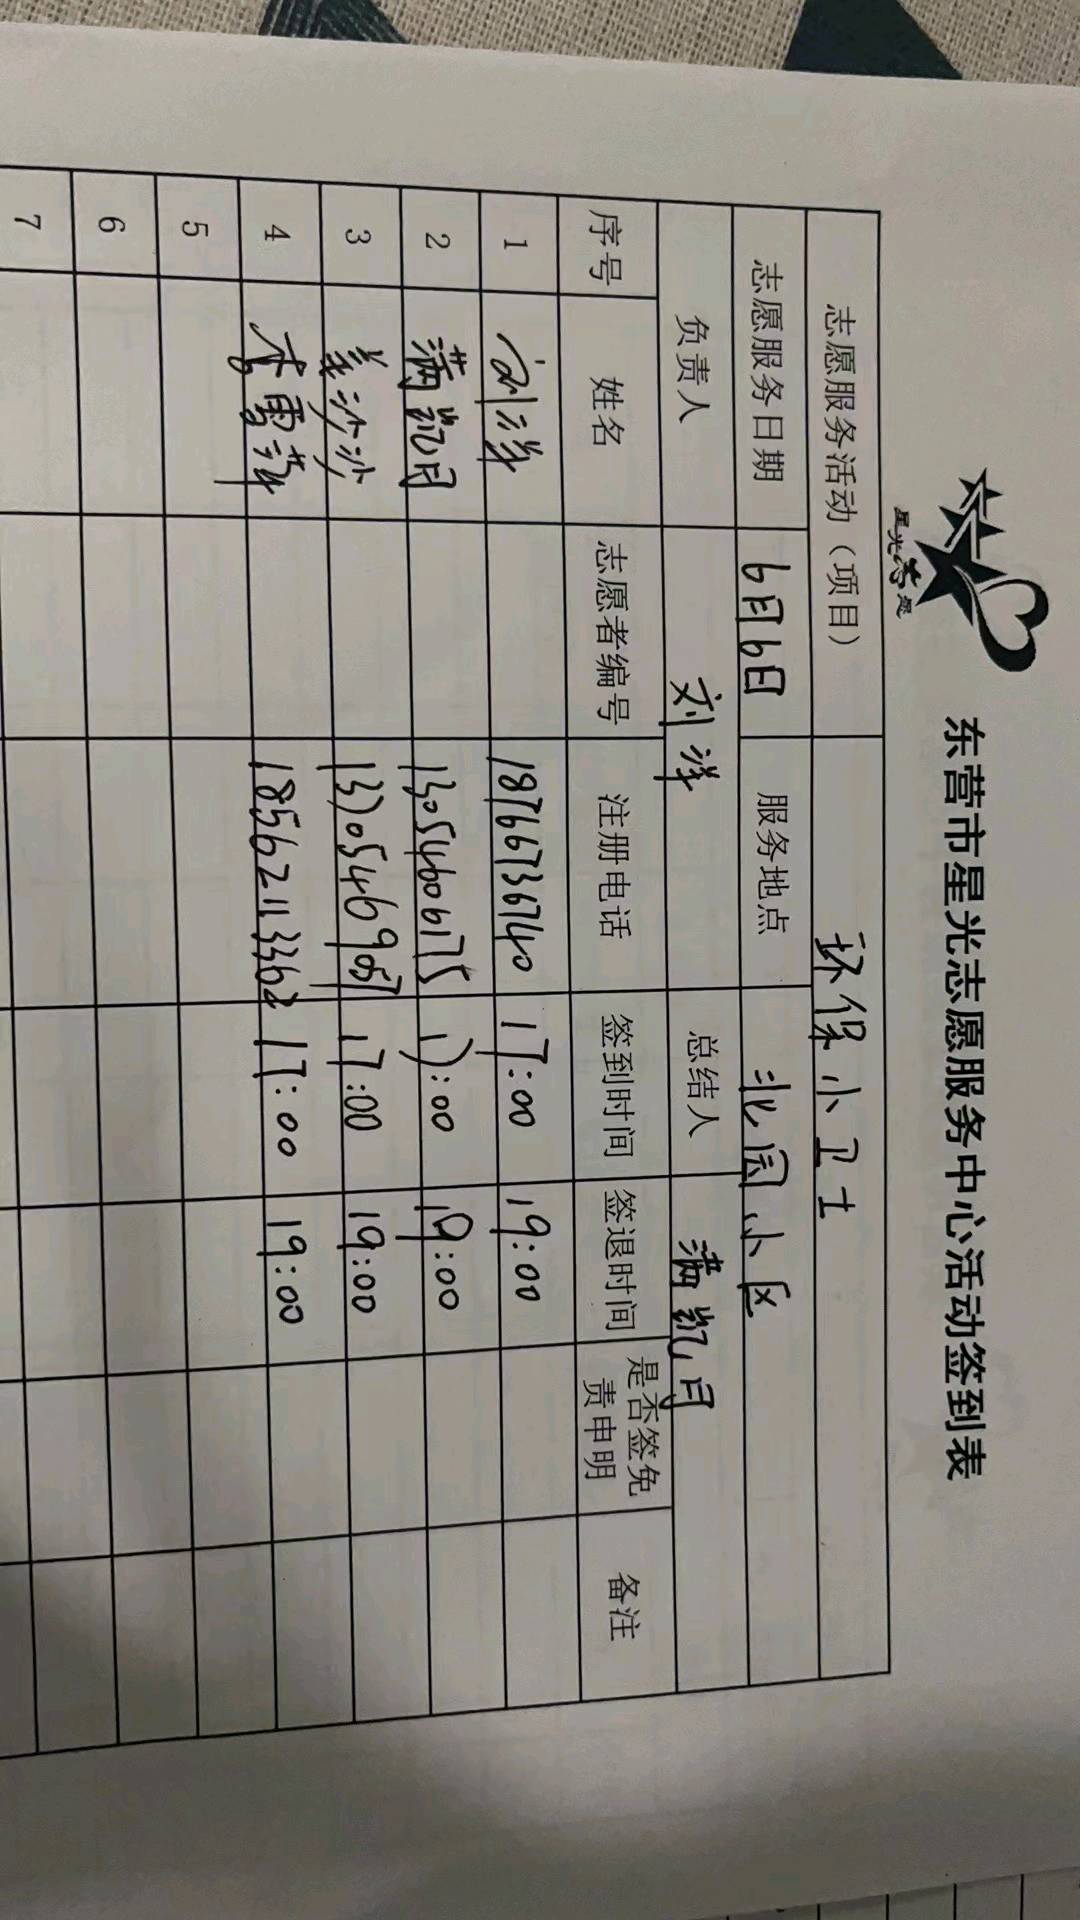 星光志愿
东营市星光志愿服务中心活动签到表
志愿服务活动（项目） 环保小卫士
志愿服务日期 6月6日 服务地点 北园小区
负责人 刘洋 总结人 满凯月
序号 姓名 志愿者编号 注册电话 签到时间 签退时间 是否签免责申明 备注
1 刘洋 18766736740 17:00 19:00
2 满凯月 13054606175 17:00 19:00
3 姜沙沙 17:00 19:00
4 李雪萍 18562113362 17:00 19:00
5
6
7